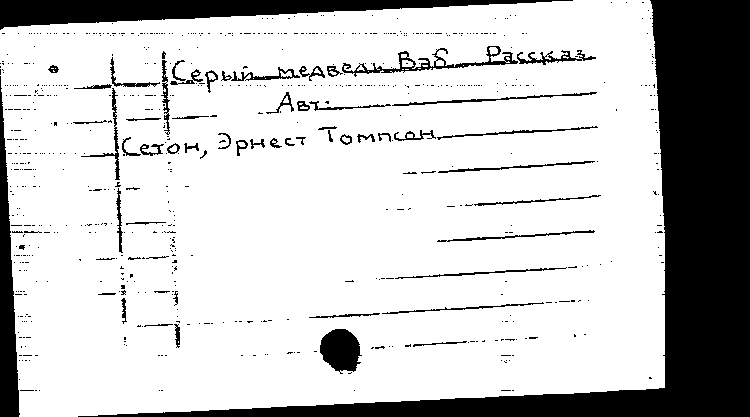 Серый медведь Вэб Рассказ
Авт:
Сетон, Эрнест Томпсон